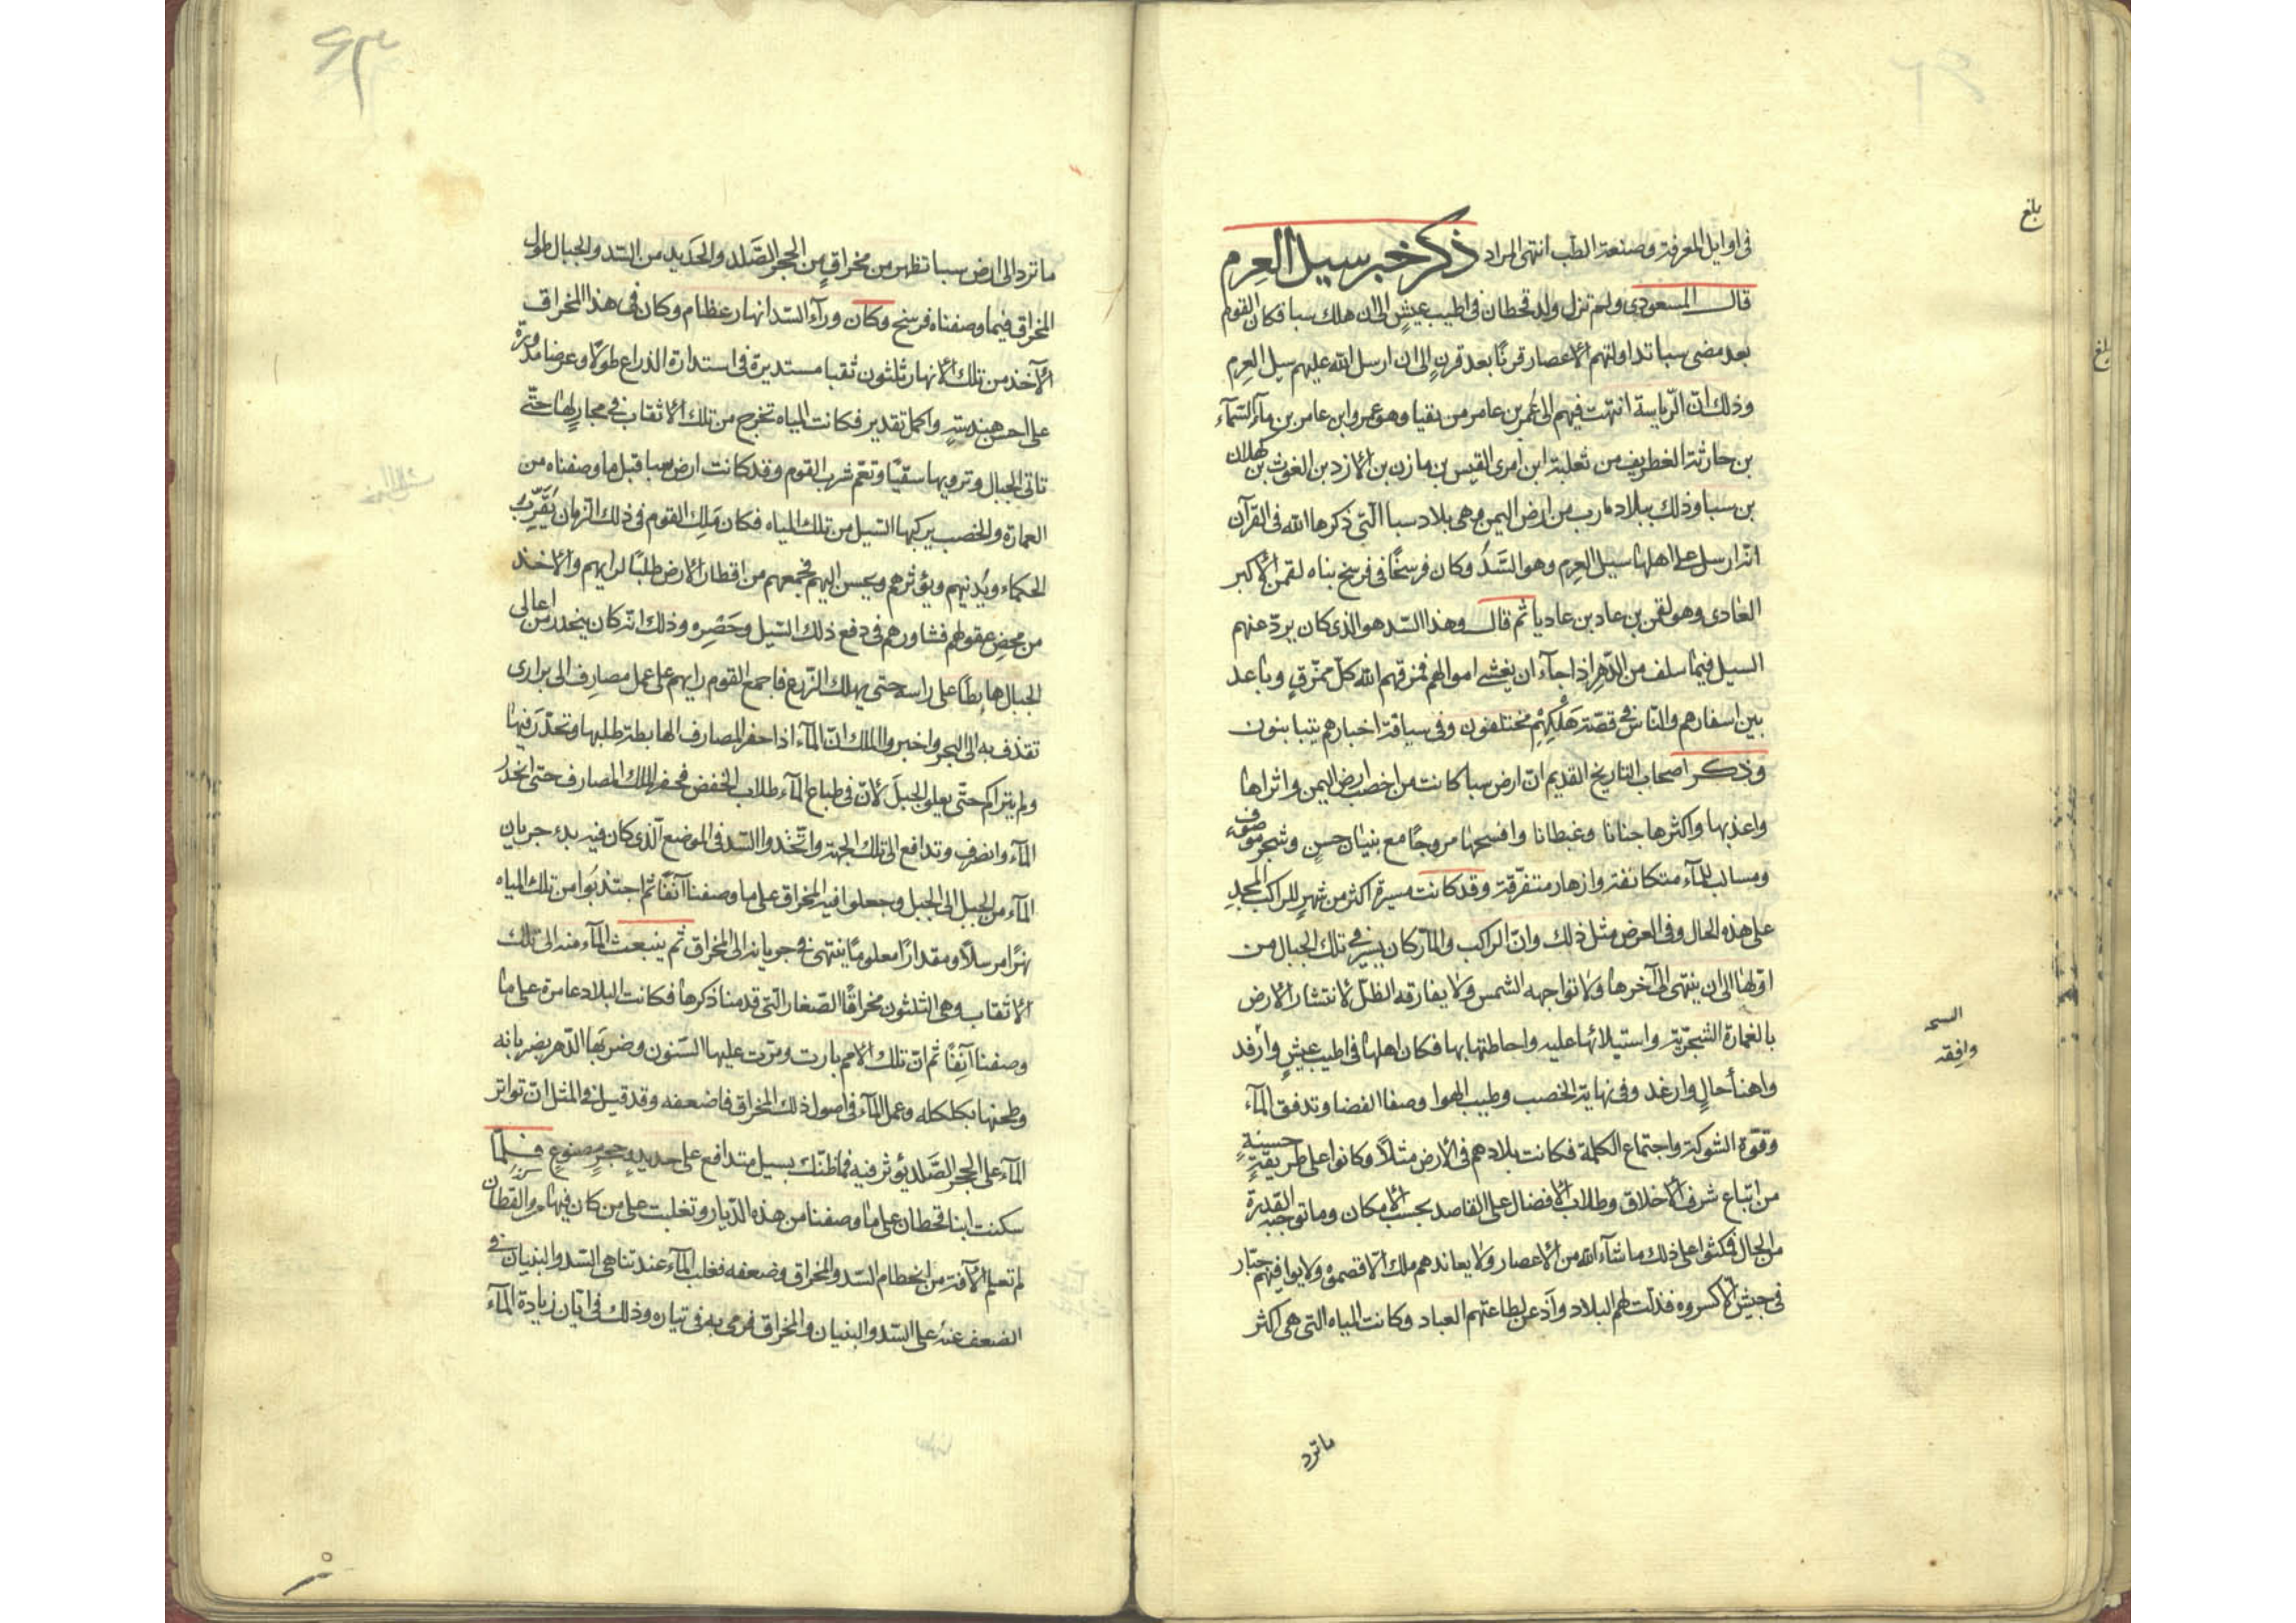 في اوايل المعرفة وصنعة الطب انتهى المراد ذكر خبر سيل العرم
قال المسعودي ولم تزل ولد قحطان في اطيب عيشٍ الى ان هلك سبا فكان القوم
بعد مضى سبا تداولتهم الاعصار قرنًا بعد قرنٍ الى ان ارسل الله عليهم سيل العرم
وذلك انّ الرّياسة انتهت فيهم الى عمرو بن عامر من يقيا وهو عمرو ابن عامر بن مآء السّمآء
بن حارثة الغطريف من ثعلبة ابن امرى القيس بن مازن بن الازد بن الغوث بن كهلان
بن سبا وذلك ببلاد مارب من ارض اليمن وهى بلاد سبا الّتى ذكرها الله فى القرآن
انه ارسل على اهلها سيل العرم وهو السَّدُّ وكان فرسخًا فى فرسخ بناه لقمن الاكبر
العادى وهو لقمن بن عاد بن عاديا ثم قال وهذا السّد هو الذى كان يردّ عنهم
السيل فيما سلف من الدّهر اذا جآء ان يغشى اموالهم فمزقهم الله كلّ ممزّقٍ وباعد
بين اسفارهم والنّاس فى قصّة هَلكِهِم مختلفون وفى سياقة اخبارهم يتباينون
وذكر اصحاب التاريخ القديم انّ ارض سبا كانت من اخصب ارض اليمن واثراها
واعذبها واكثرها جنانا وغيطانا وافسحها مروجًا مع بنيان حسنٍ وشجر موصوف
ومسالب للمآء متكاثفة وازهار متفرّقة وقد كانت مسيرة اكثر من شهرٍ للراكب المجدِ
على هذه الحال وفى العرض مثل ذلك وانّ الراكب والمآر كان يسير فى تلك الجبال من
اوّلها الى ان ينتهى الى آخرها ولا تواجهه الشمس ولا يفارقه الظلّ لانتشار الارض
بالعمارة الشجريّة واستيلائها عليه واحاطتها بها فكان اهلها فى اطيب عيشٍ وارفد
واهنأ حالٍ وارغد وفى نهاية الخصب وطيب الهوا وصفا الفضا وتدفق المآء
وقوّة الشوكة واجتماع الكلمة فكانت بلادهم فى الارض مثلًا وكانوا على طريقةٍ حسنةٍ
من اتباع شرف الاخلاق وطلاب الافضال على القاصد بحسب الامكان وما توجبه القدرة
من الحال فمكثوا على ذلك ما شآء الله من الاعصار ولا يعاندهم ملك الّا قصموه ولا يوافيهم جبّار
فى جيش الّا كسروه فذلّت لهم البلاد واذعن لطاعتهم العباد وكانت المياه التى هى اكثر
ما ترد
بلغ
بلغ
وافقه
ما ترد الى ارض سبا تظهر من مخراقٍ من الحجر الصَّلد والحديد من السّد والجبال طول
المخراق فيما وصفناه فرسخ وكان ورآء السّد انهار عظام وكان فى هذا المخراق
الآخذ من تلك الانهار ثلثون ثقبا مستديرة فى استدارة الذراع طولًا وعرضا مدورة
على احسن هندسةٍ واكمل تقدير فكانت المياه تخرج من تلك الاثقاب فى مجاريها حتّى
تاتى الجبال وترويها سقيًا وتعم شرب القوم وقد كانت ارض سبا قبل ما وصفناه من
العمارة والخصب يركبها السّيل من تلك المياه فكان مَلِك القوم فى ذلك الزمان يُقَرِّبُ
الحكماء ويُدنيهم ويؤثرهم ويحسن اليهم فجمعهم من اقطار الارض طلبًا لرايهم والاخذ
من محض عقولهم فشاورهم فى دفع ذلك السّيل وحَصْرِه وذلك انّه كان ينحدر من اعالى
الجبال هابطًا على راسه حتى يهلك الزّرع فاجمع القوم رايهم على عمل مصارف الى برارى
تقذف به الى البحر واخبروا الملك انّ المآء اذا حفر المصارف الهابطة طلبها وتحدّر فيها
ولم يتراكم حتّى يعلو الجبل لانّ فى طباع المآء طلاب الخفض فحفر الملك المصارف حتى انحدر
المآء وانصرف وتدافع الى تلك الجهة واتّخذوا السّد فى الموضع الّذى كان فيه بدء جريان
المآء من الجبل الى الجبل وجعلوا فيه المخراق على ما وصفنا آنفًا ثم اجتذبوا من تلك المياه
نهرًا مرسلًا ومقدارًا معلومًا ينتهى فى جريانه الى المخراق ثم ينبعث المآء منه الى تلك
الاثقاب وهى الثلثون مخراقًا الصّغار التى قدمنا ذكرها فكانت البلاد عامرة على ما
وصفنا آنِفًا ثم انّ تلك الامم بارت ومرّت عليها السّنون وضربها الدّهر بضرباته
وطحنها بكلكله وعمل المآء فى اصول ذلك المخراق فاضعفه وقد قيل فى المثل انّ تواتر
المآء على الحجر الصَّلد يؤثر فيه فما ظنّك بسيل متدافع على حديدٍ وحجرٍ مصنوعٍ فلمّا
سكنت ابنا قحطان على ما وصفنا من هذه الدّيار وتغلبت على من كان فيها من القطان
لم تعلم الآفة من انحطام السّد والمخراق وضعفه فغلب المآء عند تناهى السّد والبنيان فى
الضعف عنه على السّد والبنيان والمخراق فرمى به فى تياره وذلك فى ابّان زيادة المآء